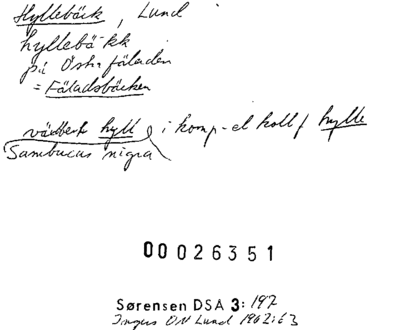 Hyllebäck, Lund
hyllebä·kk
på Östra fäladen
= Fäladsbäcken
växtbet hyll, i komp-el koll f hylle
Sambucus nigra
00026351
Sørensen DSA 3: 197
Ingers ON Lund 1962:63